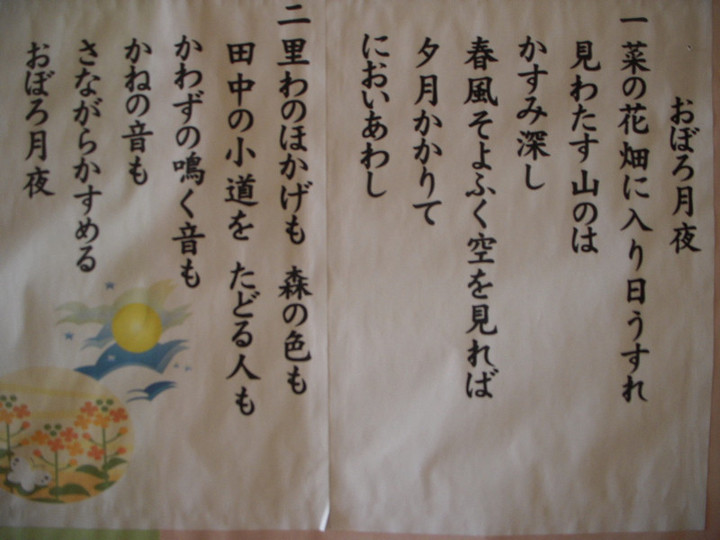 おぼろ月夜
一 菜の花畑に入り日うすれ
見わたす山のは
かすみ深し
春風そよふく空を見れば
夕月かかりて
においあわし
二 里わのほかげも 森の色も
田中の小道を たどる人も
かわずの鳴く音も
かねの音も
さながらかすめる
おぼろ月夜